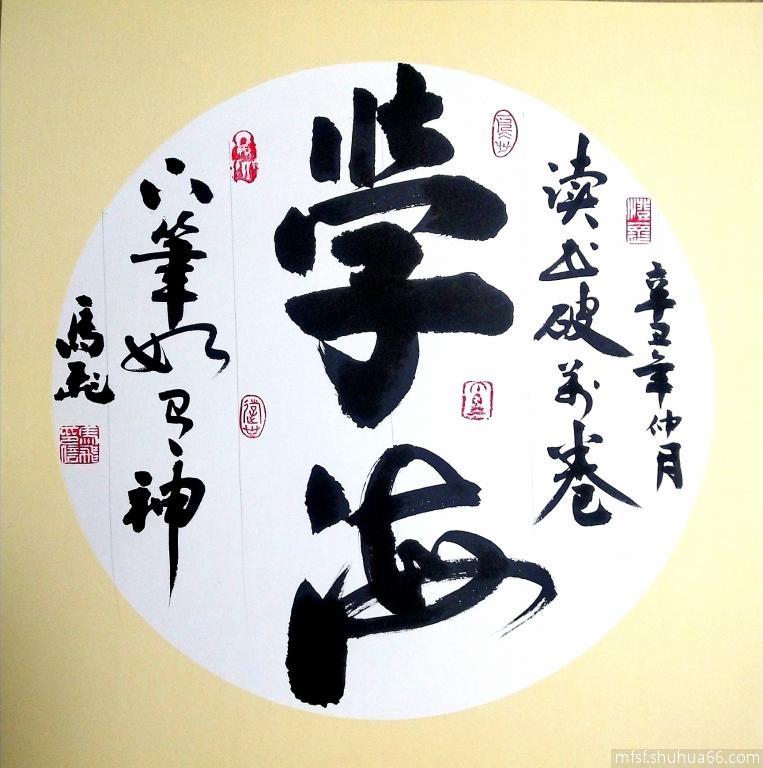 辛丑年仲月
读书破万卷
学海
下筆如有神
馬飛
mfsf.shuhua66.com